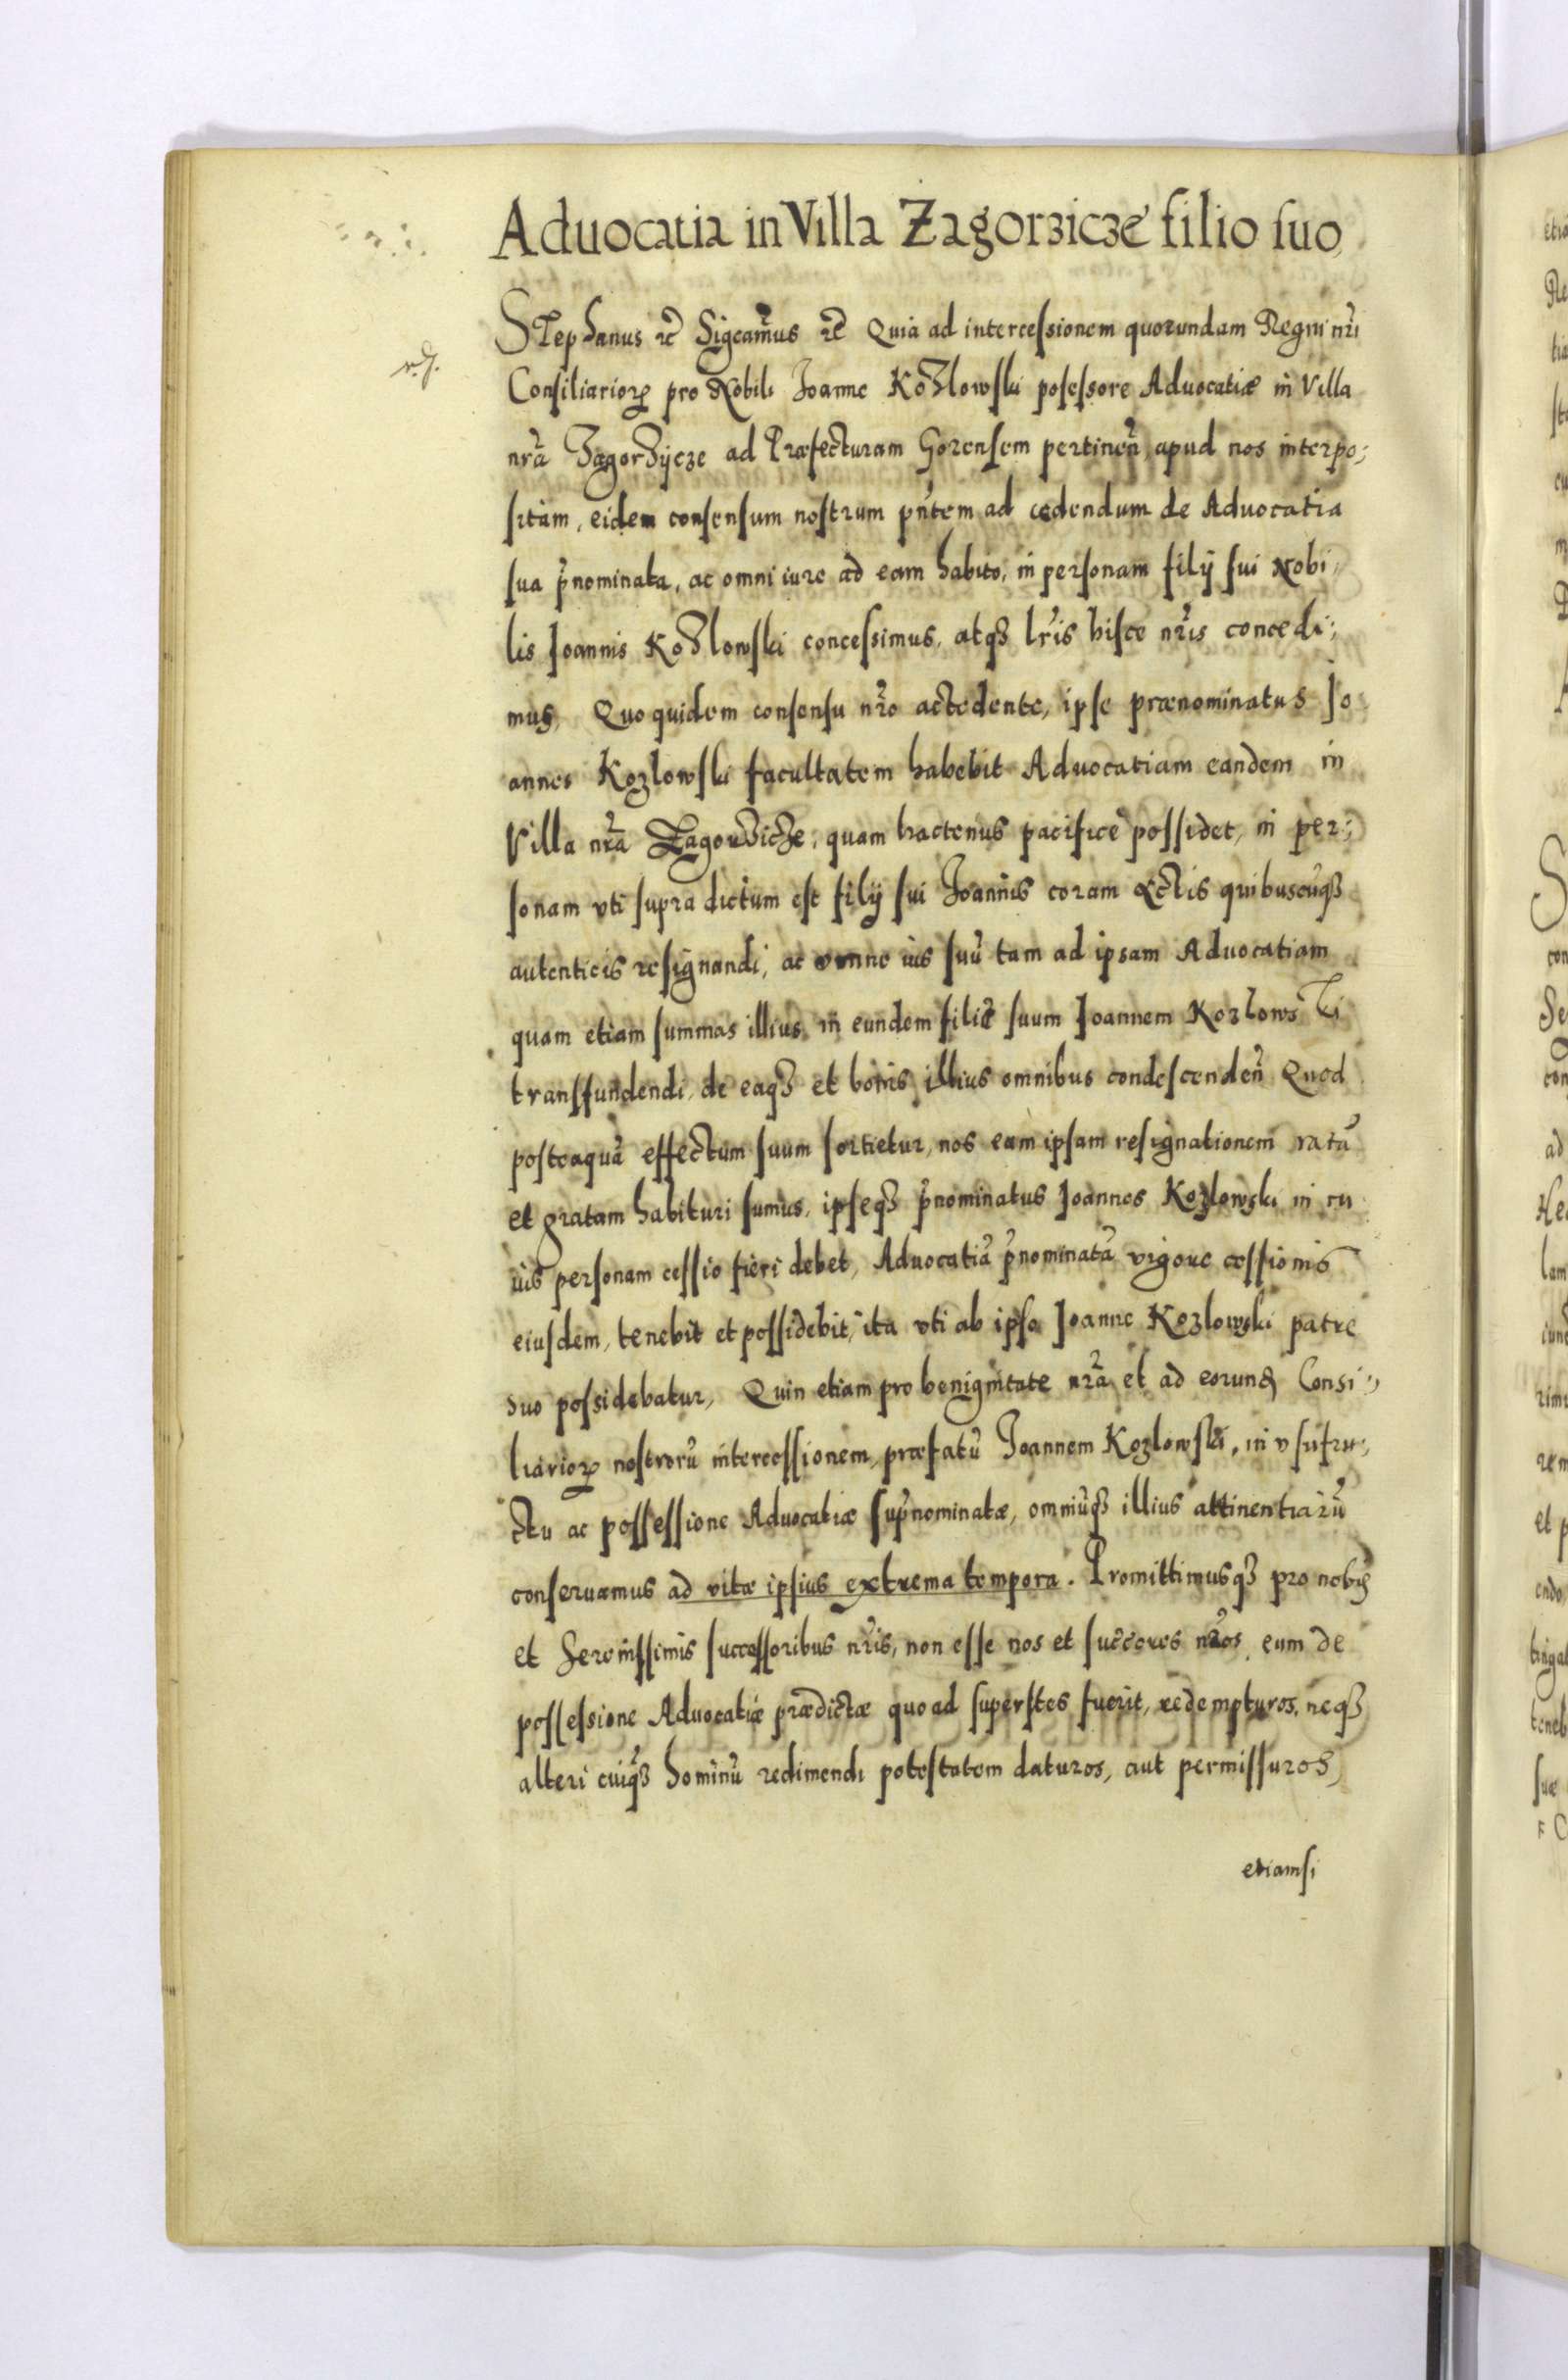 Aduocatia in Villa Zagorzicze filio suo,
Stephanus etc Sigcamus etc Quia ad intercessionem quorundam Regni nri
Consiliarioꝝ pro Nobili Joanne Kozlowski posessore Aduocatiæ in Villa
nrã Zagorzijcze ad Præfecturam Gorensem pertineñ, apud nos interpo;
sitam, eidem consensum nostrum pñtem ad cedendum de Aduocatia
sua p̃nominata, ac omni iure ad eam habito, in personam filij sui Nobi,
lis Joannis Kozlowski concessimus, atqꝫ lris hisce nris concedi;
mus, Quo quidem consensu nro accedente, ipse prænominatus Jo
annes Kozlowski facultatem habebit Aduocatiam eandem in
Villa nrã Zagorzicze, quam hactenus pacifice possidet, in per;
sonam vti supra dictum est filij sui Joannis coram Actis quibuscũqꝫ
autenticis resignandi, ac omne ius suũ tam ad ipsam Aduocatiam
quam etiam summas illius in eundem filiũ suum Joannem Kozlowski
transfundendi, de eaqꝫ et bonis illius omnibus condescendeñ Quod
posteaquã effectum suum sortietur, nos eam ipsam resignationem ratã
et gratam habituri sumus, ipseqꝫ p̃nominatus Joannes Kozlowski in cu
iuis personam cessio fieri debet, Aduocatiã p̃nominatã vigore cessionis
eiusdem, tenebit et possidebit, ita vti ab ipso Joanne Kozlowski patre
suo possidebatur, Quin etiam pro benignitate nrã et ad eorunꝺ Consi;
liarioꝝ nostrorũ intercessionem, præfatũ Joannem Kozlowski, in vsufru;
ctu ac possessione Aduocatiæ sup̃nominatæ, omniũqꝫ illius attinentiarũ
conseruamus ad vitæ ipsius extrema tempora. Promittimusqꝫ pro nobis
et Serenissimis successoribus nris, non esse nos et succores nros eum de
possessione Aduocatiæ prædictæ quoad superstes fuerit, redempturos, neqꝫ
alteri cuiqꝫ hominũ redimendi potestatem daturos, aut permissuros,
etiamsi